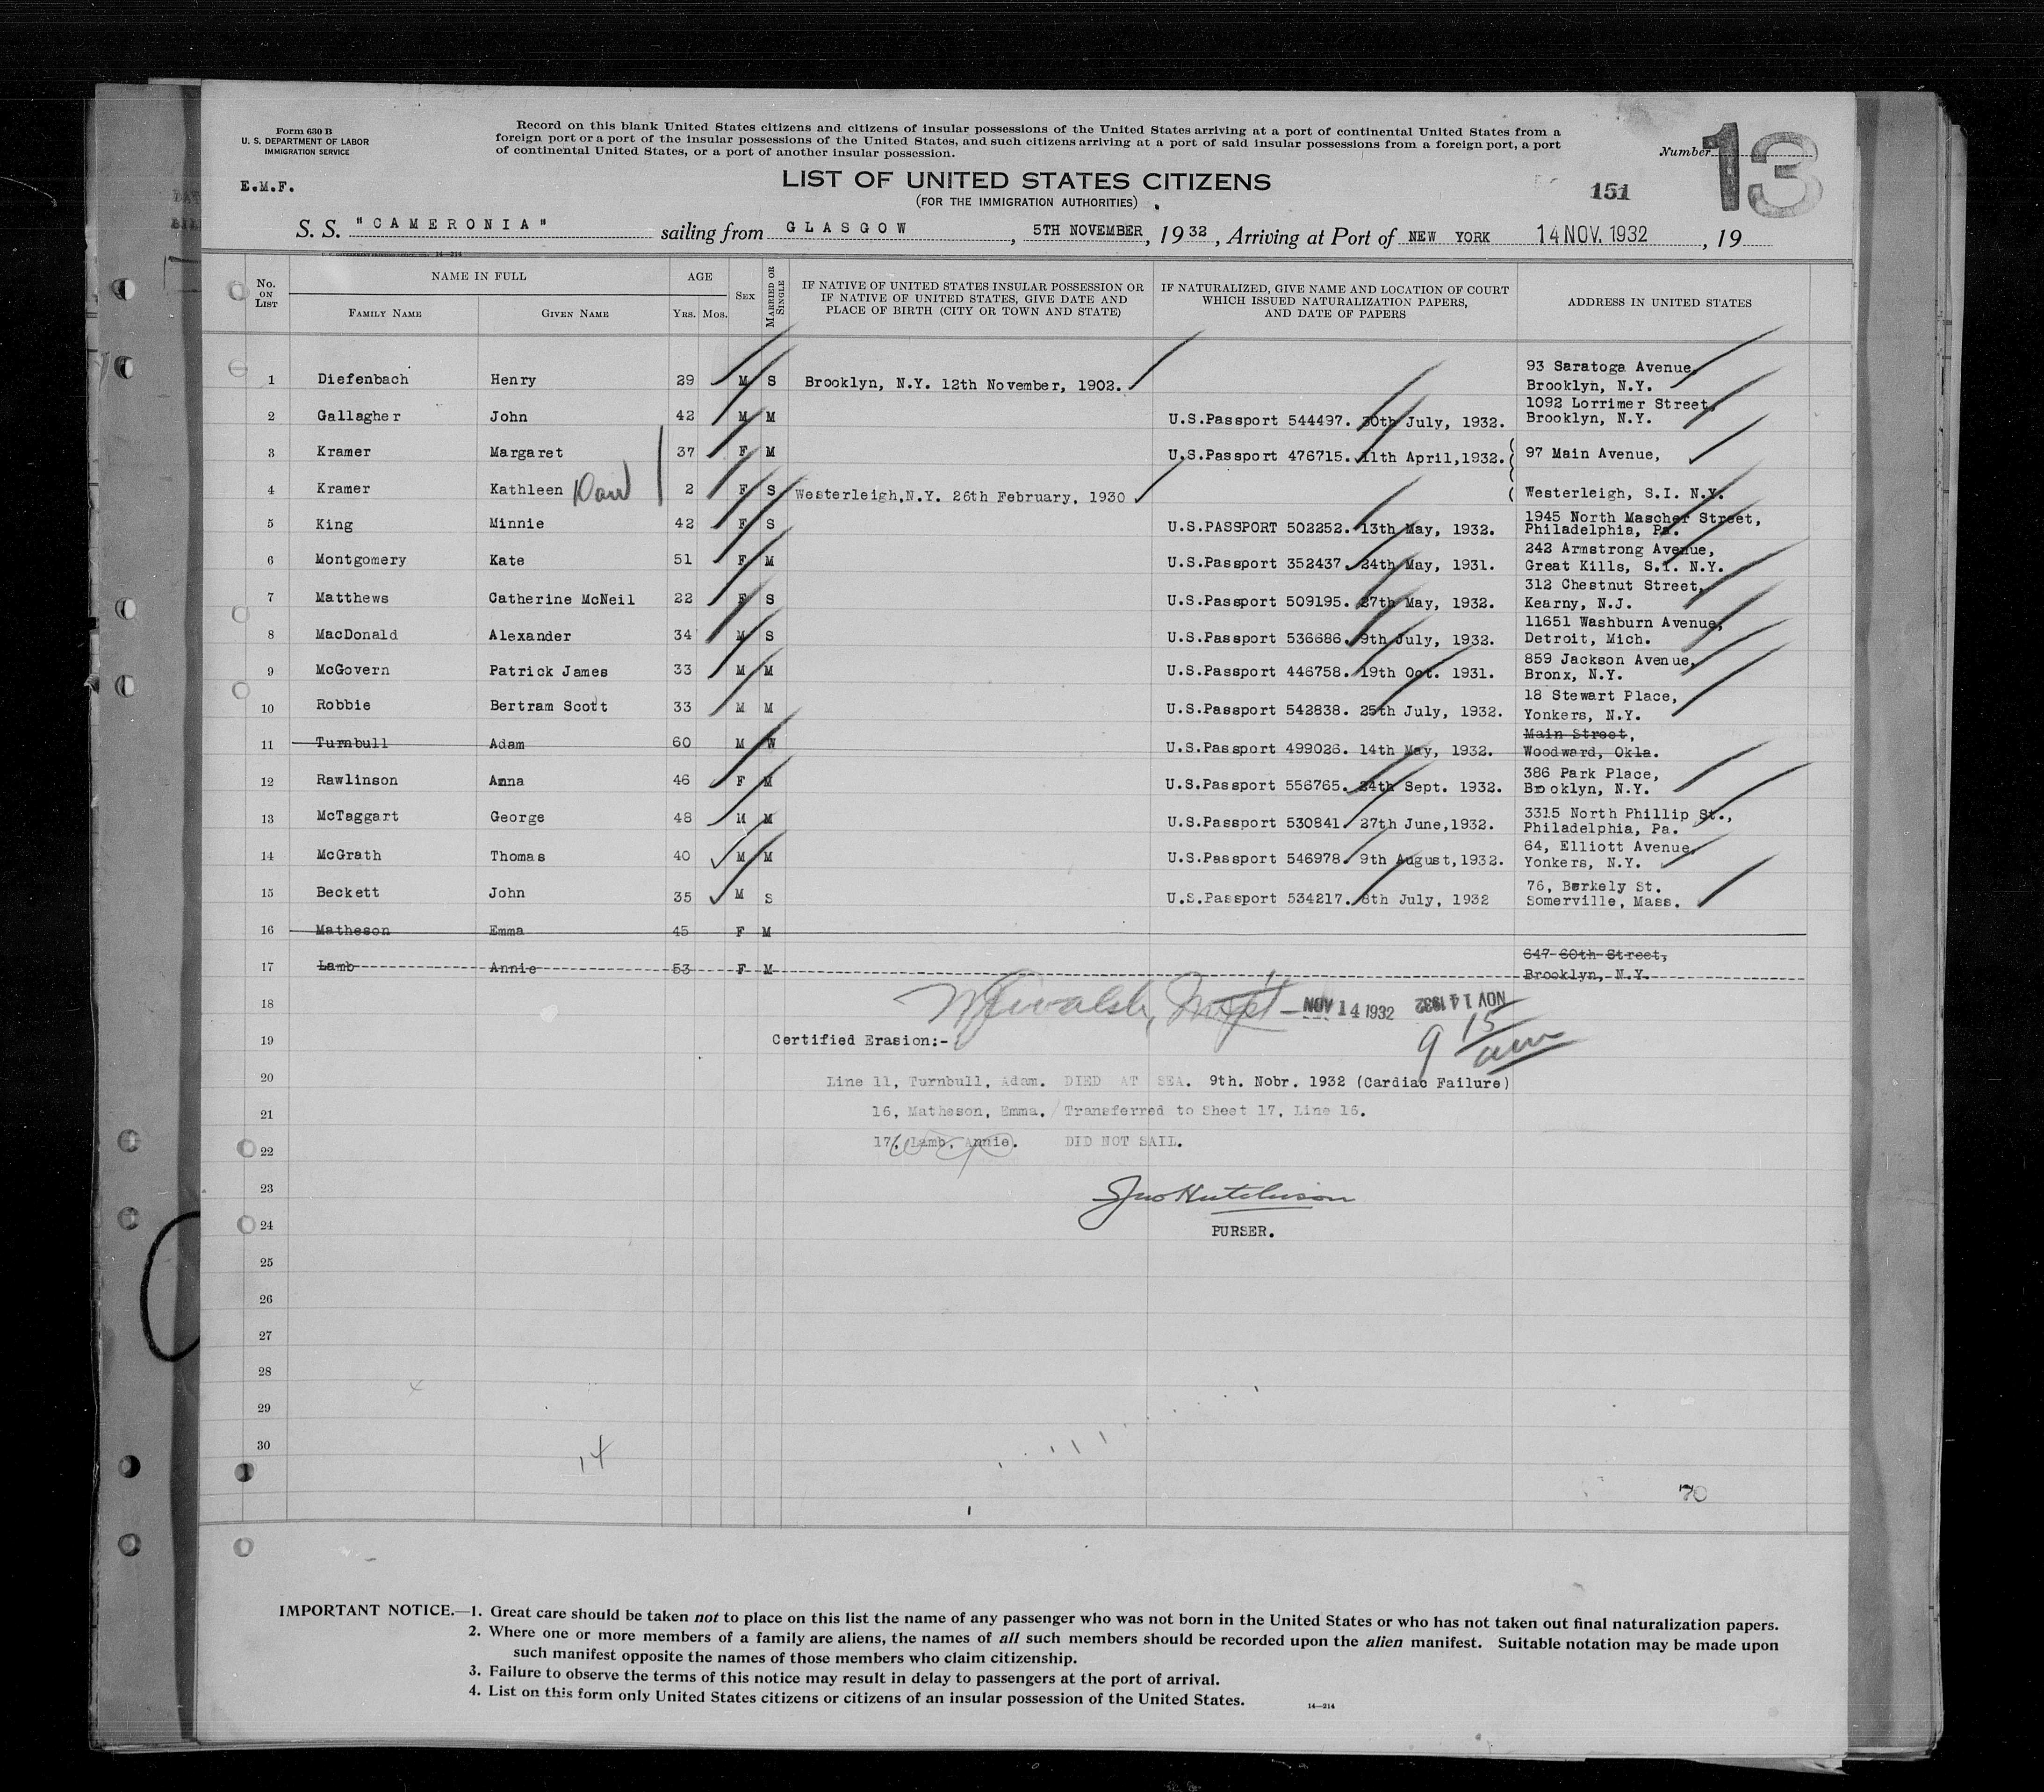 Form 630 B
U. S. DEPARTMENT OF LABOR
IMMIGRATION SERVICE
Record on this blank United States citizens and citizens of insular possessions of the United States arriving at a port of continental United States from a
foreign port or a port of the insular possessions of the United States, and such citizens arriving at a port of said insular possessions from a foreign port, a port
of continental United States, or a port of another insular possession.
Number 13
E.M.F.
LIST OF UNITED STATES CITIZENS
(FOR THE IMMIGRATION AUTHORITIES)
151
S. S. "CAMERONIA" sailing from GLASGOW, 5TH NOVEMBER, 1932, Arriving at Port of NEW YORK 14 NOV. 1932, 19
14—214
No. ON LIST
NAME IN FULL
FAMILY NAME GIVEN NAME
AGE
YRS. MOS.
SEX
MARRIED OR SINGLE
IF NATIVE OF UNITED STATES INSULAR POSSESSION OR
IF NATIVE OF UNITED STATES, GIVE DATE AND
PLACE OF BIRTH (CITY OR TOWN AND STATE)
IF NATURALIZED, GIVE NAME AND LOCATION OF COURT
WHICH ISSUED NATURALIZATION PAPERS,
AND DATE OF PAPERS
ADDRESS IN UNITED STATES
1 Diefenbach Henry 29 M S Brooklyn, N.Y. 12th November, 1902. 93 Saratoga Avenue,
Brooklyn, N.Y.
2 Gallagher John 42 M M U.S.Passport 544497. 30th July, 1932. 1092 Lorrimer Street,
Brooklyn, N.Y.
3 Kramer Margaret 37 F M U.S.Passport 476715. 11th April,1932. ( 97 Main Avenue,
4 Kramer Kathleen 2 F S Westerleigh,N.Y. 26th February, 1930 ( Westerleigh, S.I. N.Y.
5 King Minnie 42 F S U.S.PASSPORT 502252. 13th May, 1932. 1945 North Mascher Street,
Philadelphia, Pa.
6 Montgomery Kate 51 F M U.S.Passport 352437. 24th May, 1931. 242 Armstrong Avenue,
Great Kills, S.I. N.Y.
7 Matthews Catherine McNeil 22 F S U.S.Passport 509195. 27th May, 1932. 312 Chestnut Street,
Kearny, N.J.
8 MacDonald Alexander 34 M S U.S.Passport 536686. 9th July, 1932. 11651 Washburn Avenue,
Detroit, Mich.
9 McGovern Patrick James 33 M M U.S.Passport 446758. 19th Oct. 1931. 859 Jackson Avenue,
Bronx, N.Y.
10 Robbie Bertram Scott 33 M M U.S.Passport 542838. 25th July, 1932. 18 Stewart Place,
Yonkers, N.Y.
11 Turnbull Adam 60 M W U.S.Passport 499026. 14th May, 1932. Main Street,
Woodward, Okla.
12 Rawlinson Anna 46 F M U.S.Passport 556765. 24th Sept. 1932. 386 Park Place,
Brooklyn, N.Y.
13 McTaggart George 48 M M U.S.Passport 530841. 27th June,1932. 3315 North Phillip St.,
Philadelphia, Pa.
14 McGrath Thomas 40 M M U.S.Passport 546978. 9th August,1932. 64, Elliott Avenue,
Yonkers, N.Y.
15 Beckett John 35 M S U.S.Passport 534217. 8th July, 1932 76, Berkely St.
Somerville, Mass.
16 Matheson Emma 45 F M
17 Lamb Annie 53 F M 647 60th Street,
Brooklyn, N.Y.
18 NOV 14 1932 NOV 14 1932
9 15 am
19 Certified Erasion:-
20 Line 11, Turnbull, Adam. DIED AT SEA. 9th. Nobr. 1932 (Cardiac Failure)
21 16, Matheson, Emma. Transferred to Sheet 17, Line 16.
22 17, Lamb, Annie. DID NOT SAIL.
23 Jno Hutchison
24 PURSER.
25
26
27
28
29
30
14
70
IMPORTANT NOTICE.—1. Great care should be taken not to place on this list the name of any passenger who was not born in the United States or who has not taken out final naturalization papers.
2. Where one or more members of a family are aliens, the names of all such members should be recorded upon the alien manifest. Suitable notation may be made upon
such manifest opposite the names of those members who claim citizenship.
3. Failure to observe the terms of this notice may result in delay to passengers at the port of arrival.
4. List on this form only United States citizens or citizens of an insular possession of the United States.
14—214